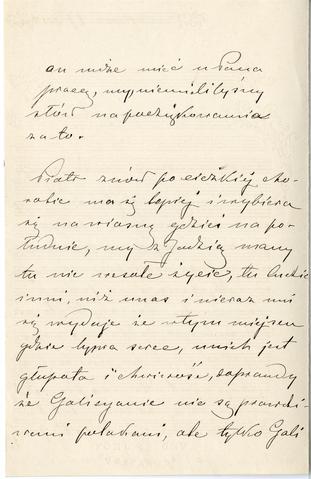 on może mieć u Pana
pracę, wynieśmielibyśmy
słów na podziękowania
za to.
Piotr znów po ciężkiej cho-
robie ma się lepiej i wybiera
się na wiosnę gdzieś na po-
łudnie, my z Jadzią mamy
tu nie wesołe życie, tu ludzie
inni, niż u nas i nieraz mi
się wydaje że w tym miejscu
gdzie bywa serce, u nich jest
głupota i chciwość, doprawdy
że Galicyanie nie są prawdzi-
wemi polakami, ale tylko Gali